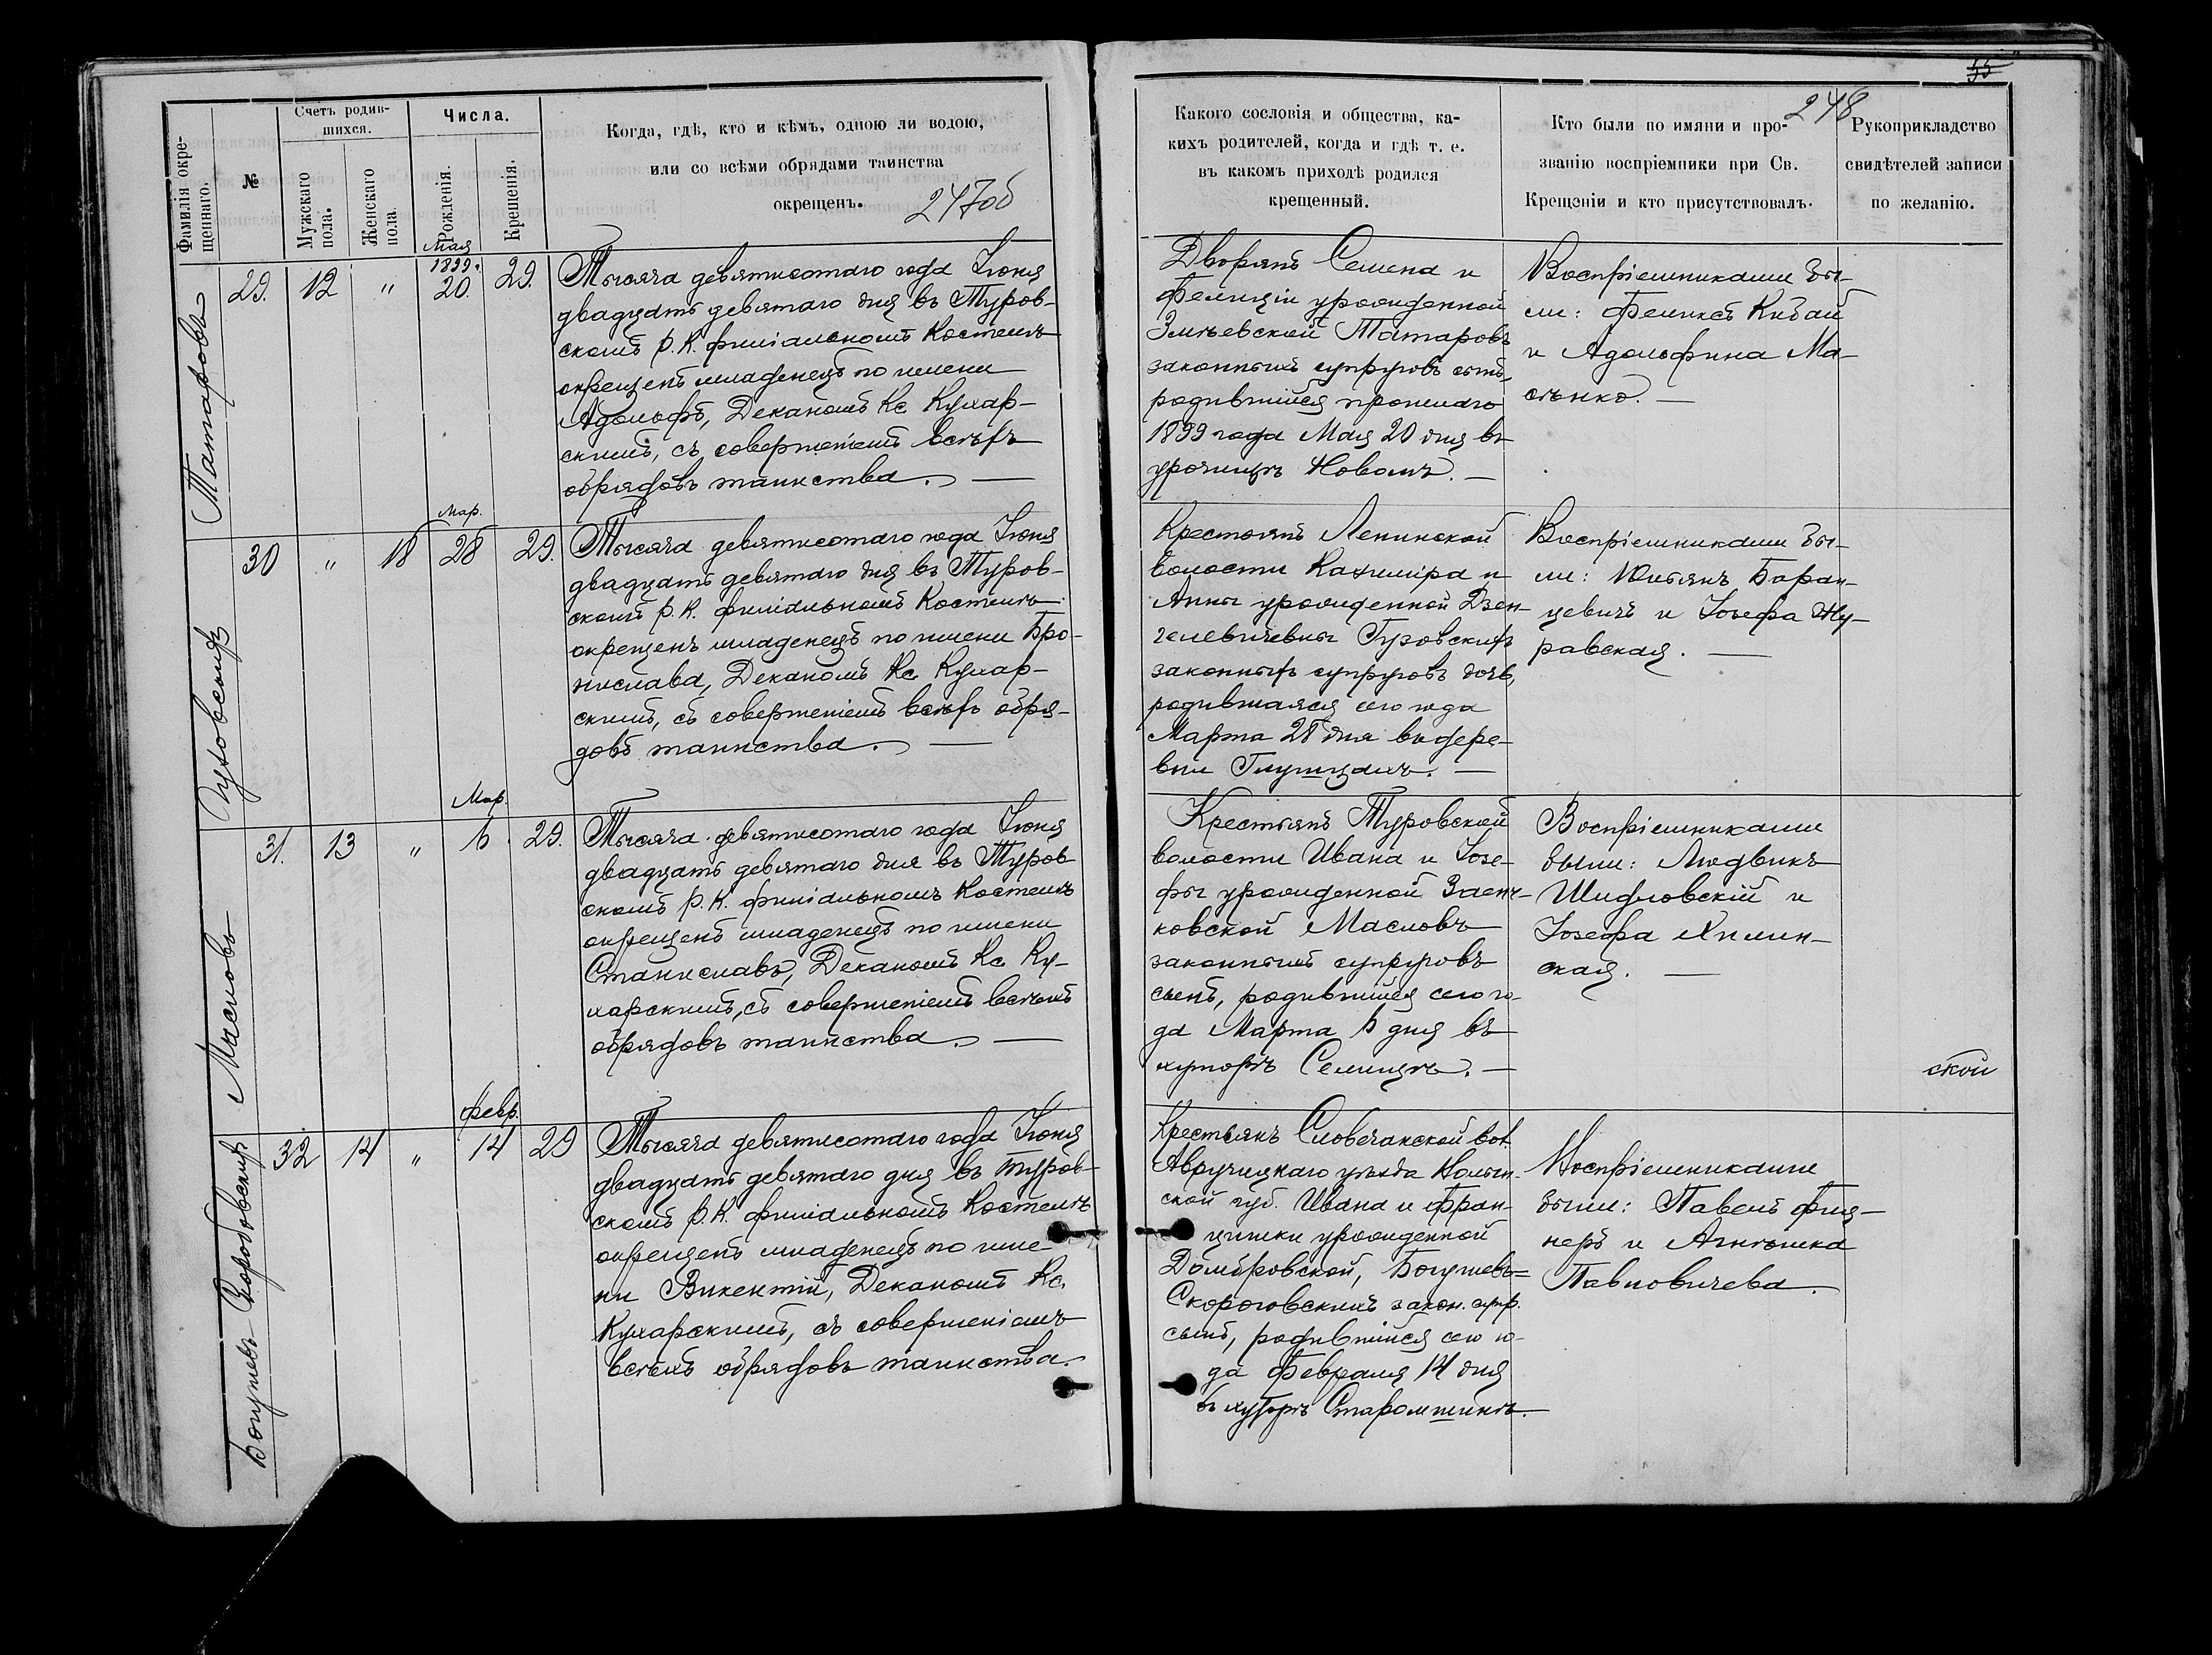 55
248
Фамилія окре-
щеннаго.
№
Счетъ родив-
шихся.
Мужскаго
пола.
Женскаго
пола.
Числа.
Рожденія.
Крещенія.
Когда, гдѣ, кто и кѣмъ, одною ли водою,
или со всѣми обрядами таинства
окрещенъ.
247об
Какого сословія и общества, ка-
кихъ родителей, когда и гдѣ т. е.
въ какомъ приходѣ родился
крещенный.
Кто были по имяни и про-
званію воспріемники при Св.
Крещеніи и кто присутствовалъ.
Рукоприкладство
свидѣтелей записи
по желанію.
Татаровъ
29. 12 "
Мая
1899.
20.
29.
Тысяча девятисотаго года Іюня
двадцать девятаго дня въ Туров-
скомъ Р. К. филіальномъ Костелѣ
окрещенъ младенецъ по имени
Адольфъ, Деканомъ Кс. Кухар-
скимъ, съ совершеніемъ всѣхъ
обрядовъ таинства. —
Дворянъ Семена и
Фелиціи урожденной
Змѣевской Татаровъ
законныхъ супруговъ сынъ,
родившійся прошлаго
1899 года Мая 20 дня въ
урочищѣ Новомъ. —
Воспріемниками бы-
ли: Феликсъ Кибай
и Адольфина Ма-
сѣнко. —
30 " 18
Мар.
28
29.
Тысяча девятисотаго года Іюня
двадцать девятаго дня въ Туров-
скомъ Р. К. филіальномъ Костелѣ
окрещенъ младенецъ по имени Бро-
нислава, Деканомъ Кс. Кухар-
скимъ, съ совершеніемъ всѣхъ обря-
довъ таинства. —
Крестьянъ Ленинской
волости Казиміра и
Анны урожденной Дзен-
гелевичевны Гузовскихъ
законныхъ супруговъ дочь,
родившаяся сего года
Марта 28 дня въ дере-
вни Глушцахъ. —
Воспріемниками бы-
ли: Юльянъ Баран-
цевичъ и Іозефа Жу-
равская. —
Масловъ
31. 13 "
Мар.
6
29.
Тысяча девятисотаго года Іюня
двадцать девятаго дня въ Туров-
скомъ Р. К. филіальномъ Костелѣ
окрещенъ младенецъ по имени
Станиславъ, Деканомъ Кс. Ку-
харскимъ, съ совершеніемъ всѣхъ
обрядовъ таинства. —
Крестьянъ Туровской
волости Ивана и Іозе-
фы урожденной Заенч-
ковской Масловъ
законныхъ супруговъ
сынъ, родившійся сего го-
да Марта 6 дня въ
хуторѣ Селищѣ. —
Воспріемниками
были: Людвикъ
Шидловскій и
Іозефа Хилин-
ская. —
ской
32 14 "
Февр.
14
29
Тысяча девятисотаго года Іюня
двадцать девятаго дня въ Туров-
скомъ Р. К. филіальномъ Костелѣ
окрещенъ младенецъ по име-
ни Викентій, Деканомъ Кс.
Кухарскимъ, съ совершеніемъ
всѣхъ обрядовъ таинства.
Крестьянъ Словечанской вол.
Авручицкаго уѣзда Волын-
ской губ. Ивана и Фран-
цишки урожденной
Домбровской, Богушевъ=
Скороговскихъ закон. супр.
сынъ, родившійся сего го-
да Февраля 14 дня
въ хуторѣ Старомшинѣ.
Воспріемниками
были: Павелъ Фиц-
неръ и Агнѣшка
Павловичева.